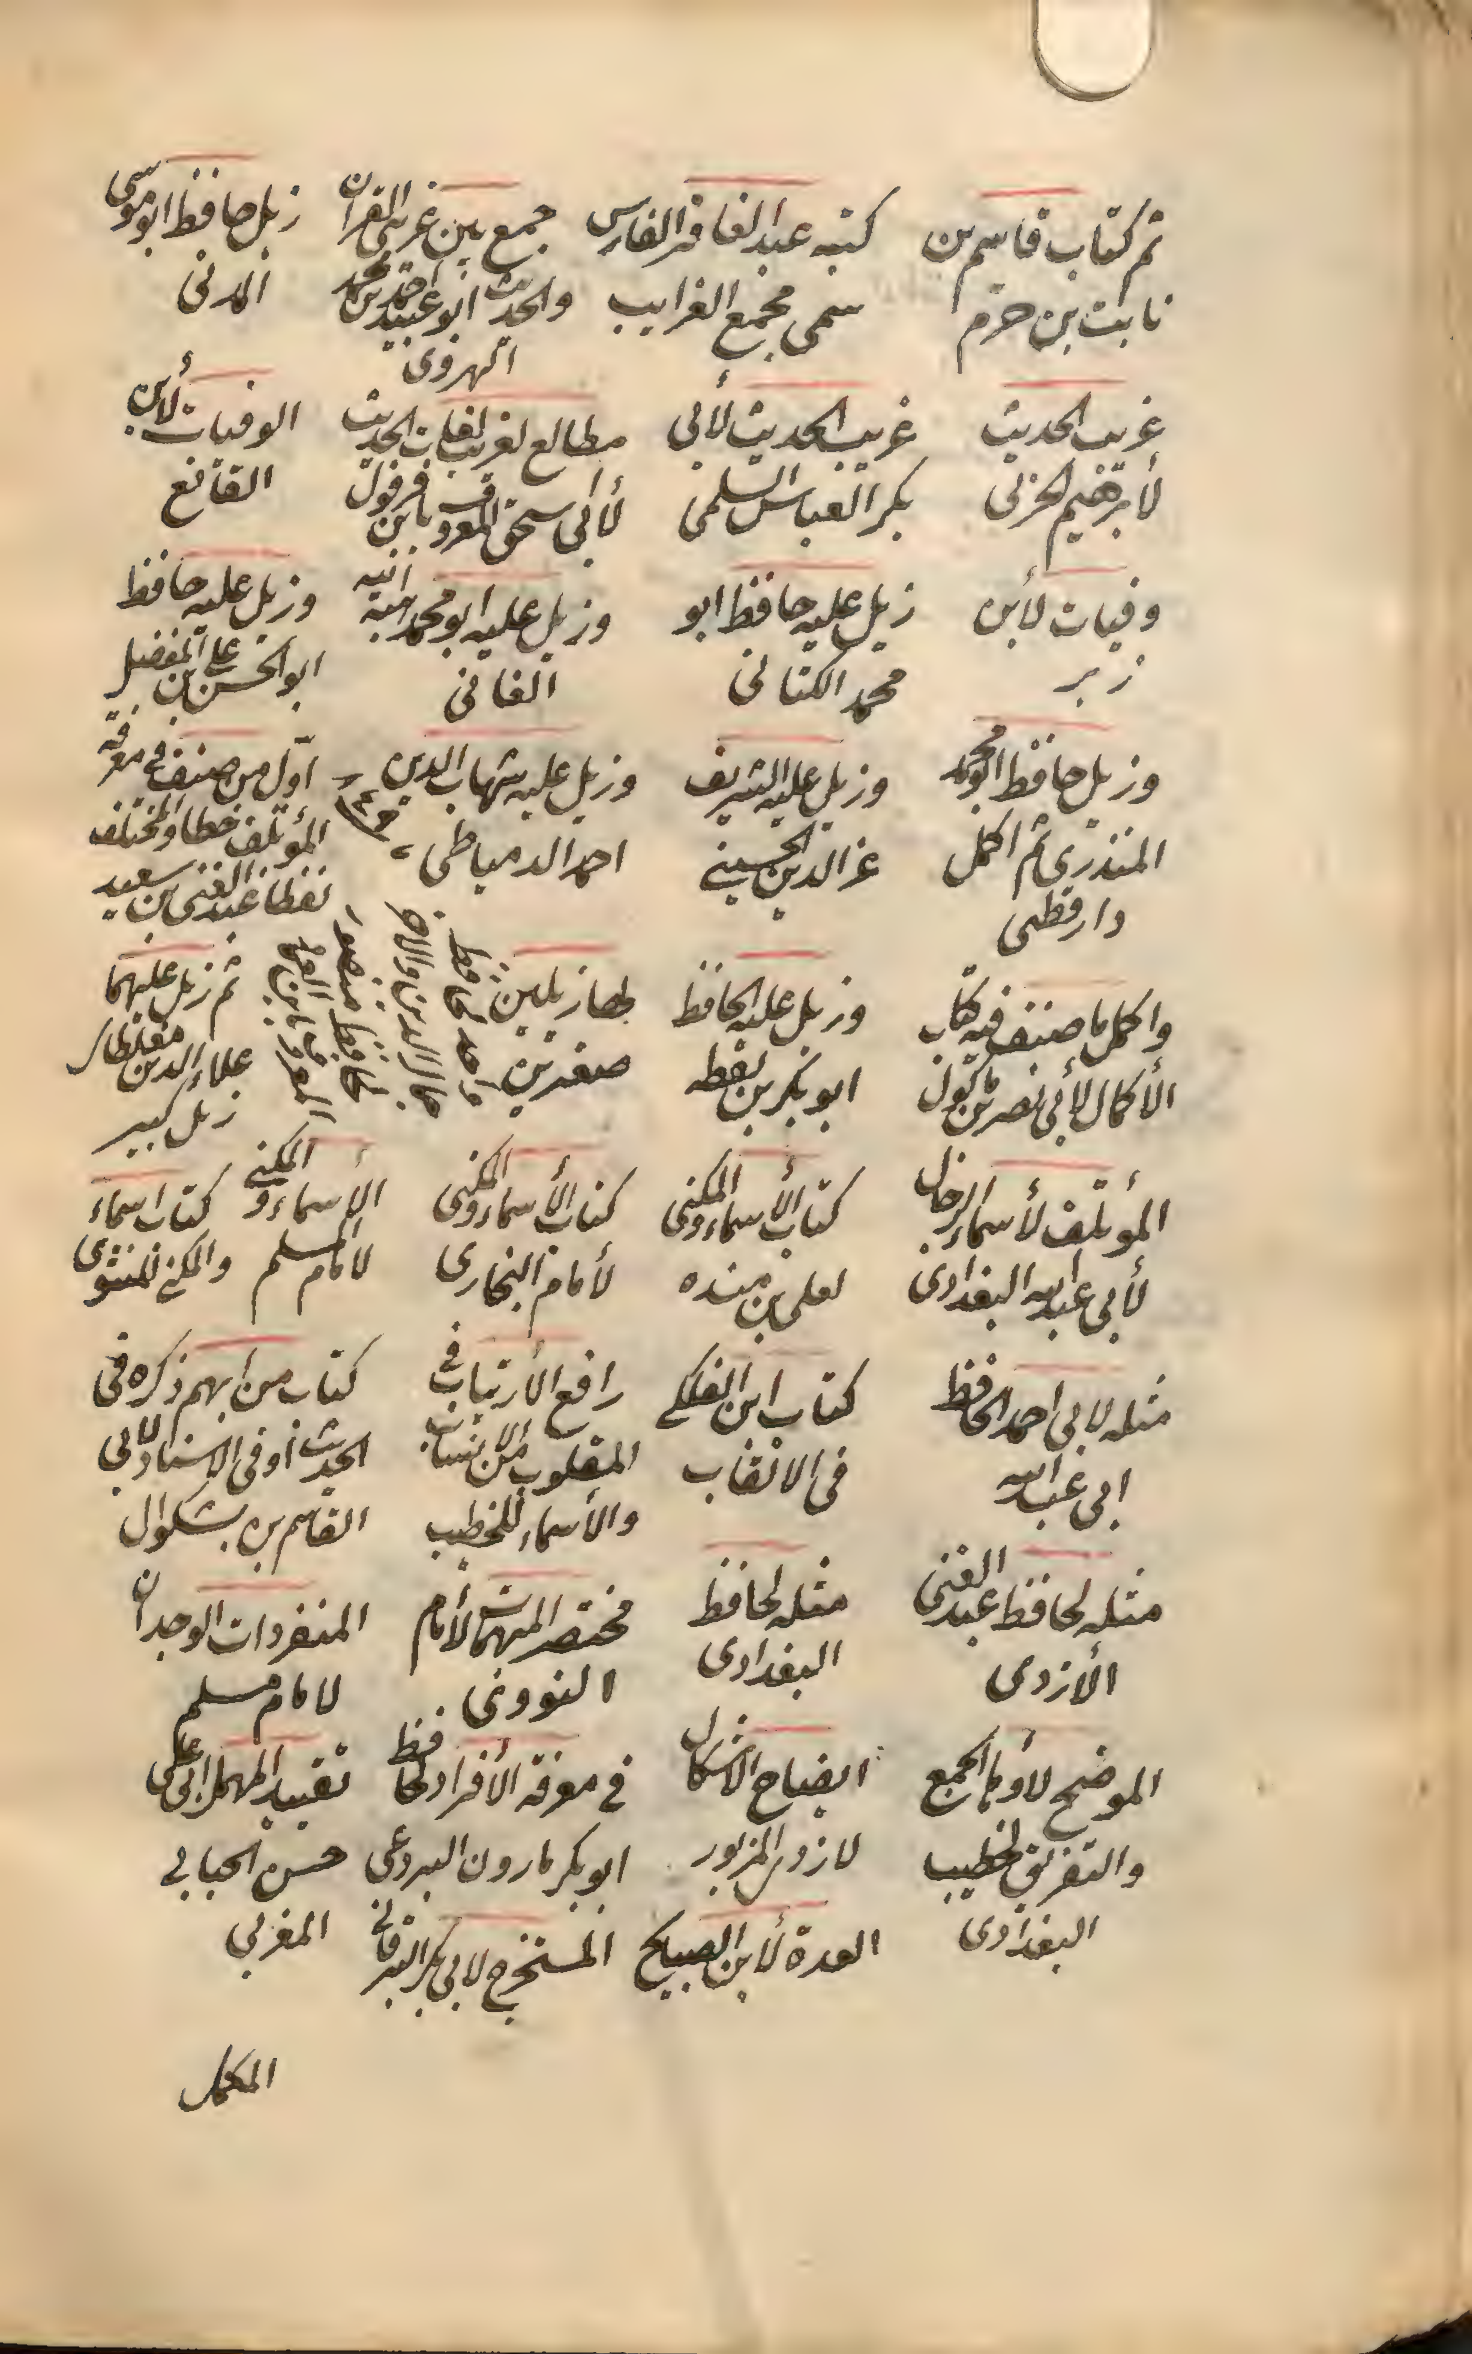 ثم كتاب قاسم بن
ثابت بن حزم
كتبه عبد الغافر الفارس
سمى مجمع الغرايب
جمع بين غريبى القران
والحديث ابو عبيد احمد بن محمد
الهروى
زيل حافظ ابو موسى
المدنى
غريب الحديث
لأبرهيم الحزنى
غريب الحديث لأبى
بكر العباس السلمى
مطالع لغريب لغات الحديث
لأبى اسحق المعروف بابن قرقول
الوفيات لأبن
القانع
وفيات لأبن
زبر
زيل عليه حافظ ابو
محمد الكتانى
وزيل عليه ابو محمد هبة
الفانى
وزيل عليه حافظ
ابو الحسن بن على المفضل
وزيل حافظ ابو محمد
المنذرى ثم اكمل
دارقطنى
وزيل عليه الشريف
عز الدين الحسينى
وزيل عليه شهاب الدين
احمد الدمياطى
اول من صنف فى معرفة
المؤتلف خطا والمختلف
نفظا عبد الغنى بن سعيد
واكمل ما صنف فيه كتاب
الأكمال لأبى نصر بن ماكول
وزيل عليه الحافظ
ابو بكر بن نقطه
لها زيلين
صغيرين
ثم زيل عليهما
علاء الدين مغلطاى
زيل كبير
المؤتلف لأسماء الرجال
لأبى عبد الله البغدادى
كتاب الأسماء والكنى
لعلى بن منده
كتاب الأسماء والكنى
لأمام البخارى
الأسماء والكنى
لامام المسلم
كتاب اسماء
والكنى
مثله لابى احمد الحافظ
ابى عبد الله
كتاب ابن الفلكى
فى الالقاب
رافع الأرتياب فى
المقلوب من الانساب
والأسماء للخطيب
كتاب من ابهم ذكره فى
الحديث أو فى الاسناد لابى
القاسم بن بشكوال
مثله لحافظ عبد الغنى
الأزدى
مثله لحافظ
البغدادى
مختصر المبهمات لأمام
النووى
المنفردات الوحدان
لامام مسلم
الموضح لأوهام الجمع
والتفريق لخطيب
البغدادى
ايضاح الاشكال
لازدى المزبور
فى معرفة الأفراد لحافظ
ابو بكر هارون البردعى
تقييد المهمل لابى على
حسن الجبابى
المغربى
العدة لأبن الصباح
المستخرج لابى بكر البرقانى
المكمل